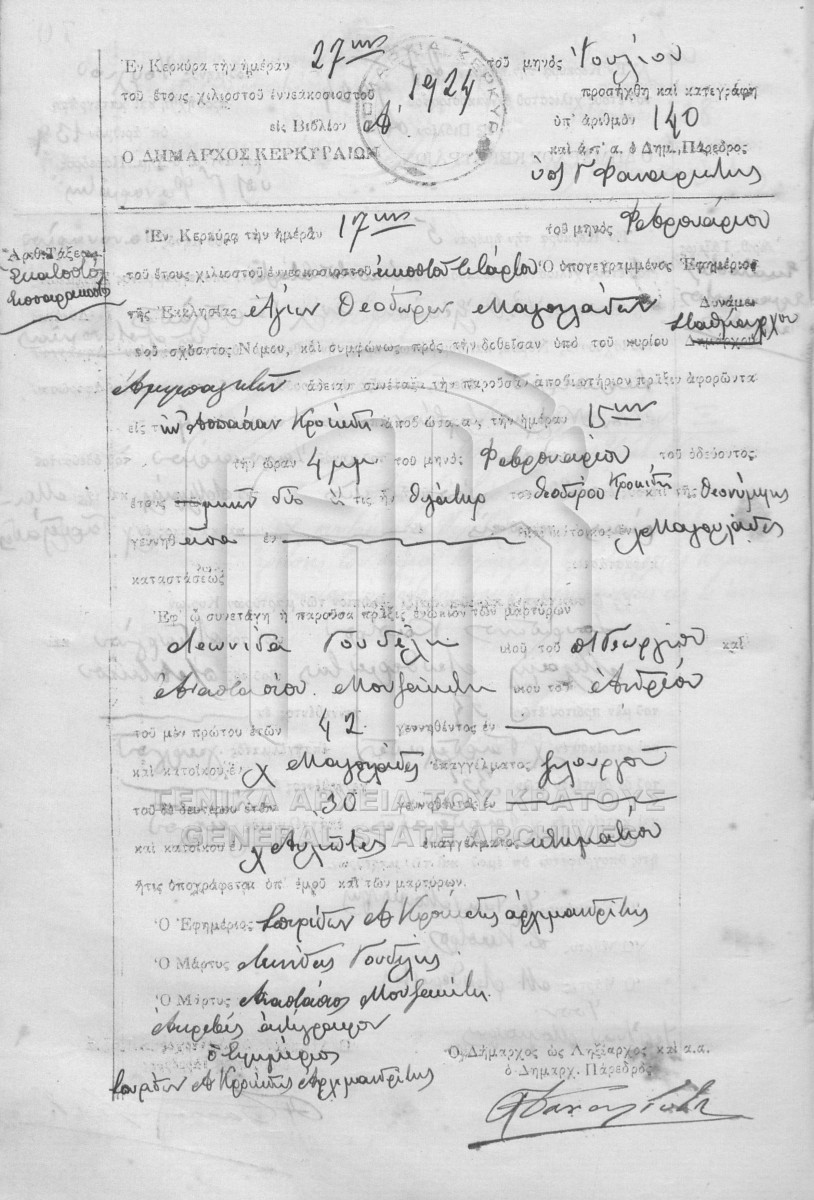 Ἐν Κερκύρᾳ τὴν ἡμέραν 27ην τοῦ μηνὸς Ἰουλίου
τοῦ ἔτους χιλιοστοῦ ἐννεακοσιοστοῦ 1924 προσήχθη καὶ κατεγράφη
εἰς Βιβλίον Α' ὑπ' ἀριθμὸν 140
Ο ΔΗΜΑΡΧΟΣ ΚΕΡΚΥΡΑΙΩΝ καὶ ἀντ' α. ὁ Δημ. Πάρεδρος
Ἐν Κερκύρᾳ τὴν ἡμέραν 17ην τοῦ μηνὸς Φεβρουαρίου
Ἀριθ. Τάξεως
Ἑκατοστὸς
τεσσαρακοστὸς
τοῦ ἔτους χιλιοστοῦ ἐννεακοσιοστοῦ εἰκοστοῦ τετάρτου Ὁ ὑπογεγραμμένος Ἐφημέριος
τῆς Ἐκκλησίας Ἁγίων Θεοδώρων Μαγουλάδων Δυνάμει
Σταθμάρχου
τοῦ σχόντος Νόμου, καὶ συμφώνως πρὸς τὴν δοθεῖσαν ὑπὸ τοῦ κυρίου Δημάρχου
ἄδειαν συνέταξα τὴν παροῦσαν ἀποβιωτήριον πρᾶξιν ἀφορῶντα
εἰς τὴν Ἀσπασίαν Κροκίδη ἀποβιώσασαν τὴν ἡμέραν 15ην
τὴν ὥραν 4 μμ τοῦ μηνὸς Φεβρουαρίου τοῦ ὁδεύοντος
ἔτους μηνῶν δύο ἥ τις ἦν θυγάτηρ τοῦ Θεοδώρου Κροκίδη καὶ τῆς Θεονύμφης
γεννηθεῖσα ἐν κάτοικος ἐν χ Μαγουλάδες
καταστάσεως
Ἐφ' ᾧ συνετάγη ἡ παροῦσα πρᾶξις ἐνώπιον τῶν μαρτύρων
Λεωνίδα Γουδέλη υἱοῦ τοῦ Γεωργίου καὶ
Ἀναστασίου Μουζακίτη υἱοῦ τοῦ Ἀνδρέου
τοῦ μὲν πρώτου ἐτῶν 42 γεννηθέντος ἐν
καὶ κατοίκου ἐν χ Μαγουλάδες ἐπαγγέλματος ξυλουργοῦ
τοῦ δὲ δευτέρου ἐτῶν 30 γεννηθέντος ἐν
ΓΕΝΙΚΑ ΑΡΧΕΙΑ ΤΟΥ ΚΡΑΤΟΥΣ
GENERAL STATE ARCHIVES
καὶ κατοίκου ἐν χ Αὐλιῶτες ἐπαγγέλματος κτηματίου
ἥτις ὑπογράφεται ὑπ' ἐμοῦ καὶ τῶν μαρτύρων.
Ὁ Ἐφημέριος Σπυρίδων Α Κροκίδης ἀρχιμανδρίτης
Ὁ Μάρτυς Λεωνίδας Γουδέλης
Ὁ Μάρτυς Ἀναστάσιος Μουζακίτη
Ἀκριβὲς ἀντίγραφον
ὁ Ἐφημέριος
Σπυρίδων Α Κροκίδης Ἀρχιμανδρίτης
Ὁ Δήμαρχος ὡς Ληξίαρχος καὶ α.α.
ὁ Δημαρχ. Πάρεδρος